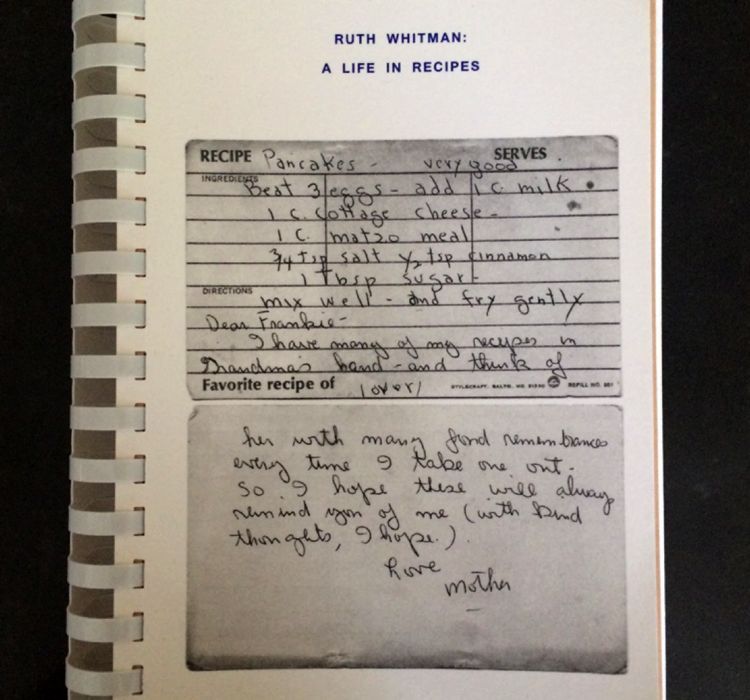 RUTH WHITMAN:
A LIFE IN RECIPES
RECIPE Pancakes - very good SERVES
INGREDIENTS Beat 3 eggs - add 1 c. milk
1 c. cottage cheese -
1 c. matzo meal
3/4 tsp salt 1/2 tsp cinnamon
1 Tbsp sugar -
DIRECTIONS mix well - and fry gently
Dear Frankie -
I have many of my recipes in
Grandma's hand - and think of
Favorite recipe of (over) STYLECRAFT, BALTO. MD 21230 REFILL NO. 501
her with many fond remembrances
every time I take one out.
So I hope these will always
remind you of me (with kind
thoughts, I hope.).
Love
Mother